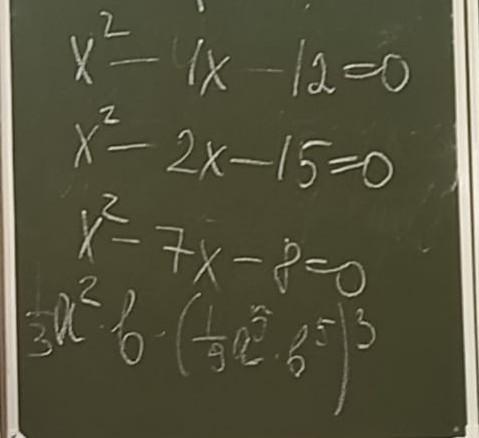 x² − 4x − 12 = 0
x² − 2x − 15 = 0
x² − 7x − 8 = 0
1/3 a² · b · (1/9 a⁵ · b⁵)³